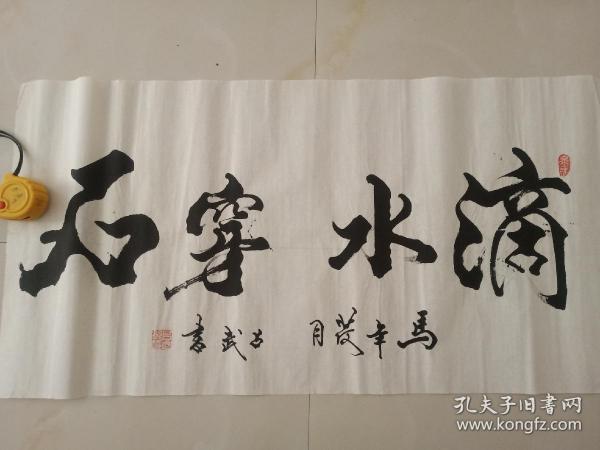 滴水穿石
馬年菼月
武書
孔夫子旧書网
www.kongfz.com